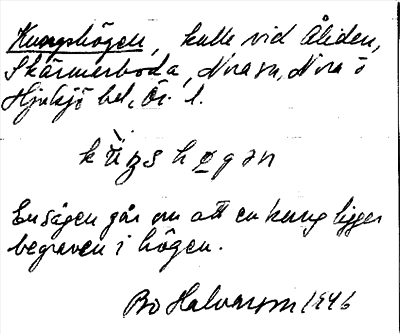 Kungshögen, kulle vid Åliden,
Skärmarboda, Nora sn, Nora o
Hjulsjö bel, Ör. l.
kùŋshøgən
En sägen går om att en kung ligger
begraven i högen.
Bo Halvarson 1946